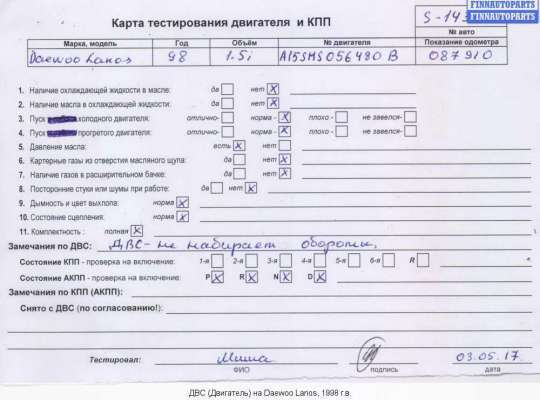 FINNAUTOPARTS
Карта тестирования двигателя и КПП
S-143
FINNAUTOPARTS
№ авто
Марка, модель Год Объём № двигателя Показание одометра
Daewoo Lanos 98 1.5i A15SMS056480B 087910
1. Наличие охлаждающей жидкости в масле: да нет X
2. Наличие масла в охлаждающей жидкости: да нет X
3. Пуск холодного двигателя: отлично- норма - X плохо - не завелся-
4. Пуск прогретого двигателя: отлично- норма - X плохо - не завелся-
5. Давление масла: есть X нет
6. Картерные газы из отверстия масляного щупа: да нет X
7. Наличие газов в расширительном бачке: да нет X
8. Посторонние стуки или шумы при работе: да нет X
9. Дымность и цвет выхлопа: норма X
10. Состояние сцепления: норма X
11. Комплектность : полная X
Замечания по ДВС: ДВС - не набирает обороты.
Состояние КПП - проверка на включение: 1-я 2-я 3-я 4-я 5-я 6-я R
Состояние АКПП - проверка на включение: P X R X N X D X
Замечания по КПП (АКПП):
Снято с ДВС (по согласованию!):
Тестировал: Миша 03.05.17
ФИО подпись дата
ДВС (Двигатель) на Daewoo Lanos, 1998 г.в.